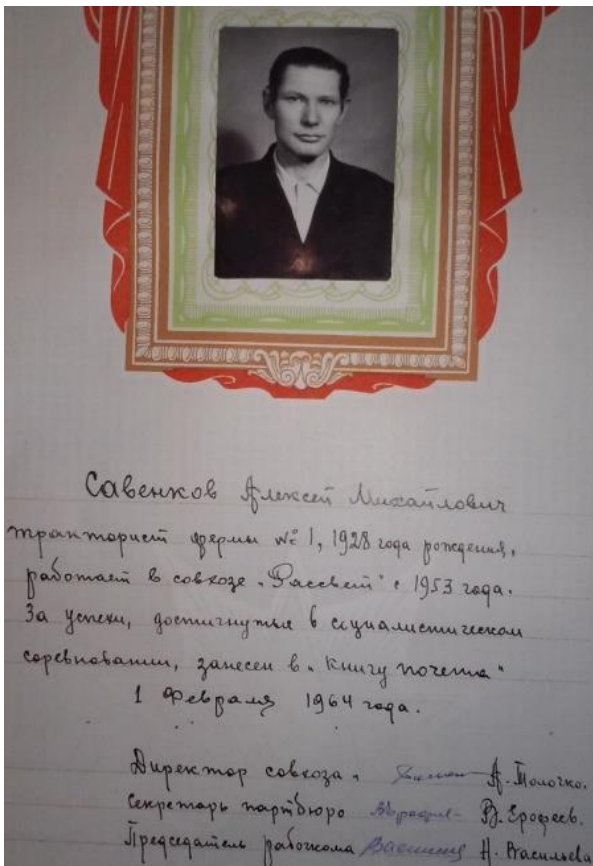 Савенков Алексей Михайлович
тракторист фермы № 1, 1928 года рождения,
работает в совхозе „Рассвет" с 1953 года.
За успехи, достигнутые в социалистическом
соревновании, занесен в „Книгу почета"
1 Февраля 1964 года.
Директор совхоза. А. Толочко.
Секретарь партбюро В. Ерофеев.
Председатель рабочкома Н. Васильева